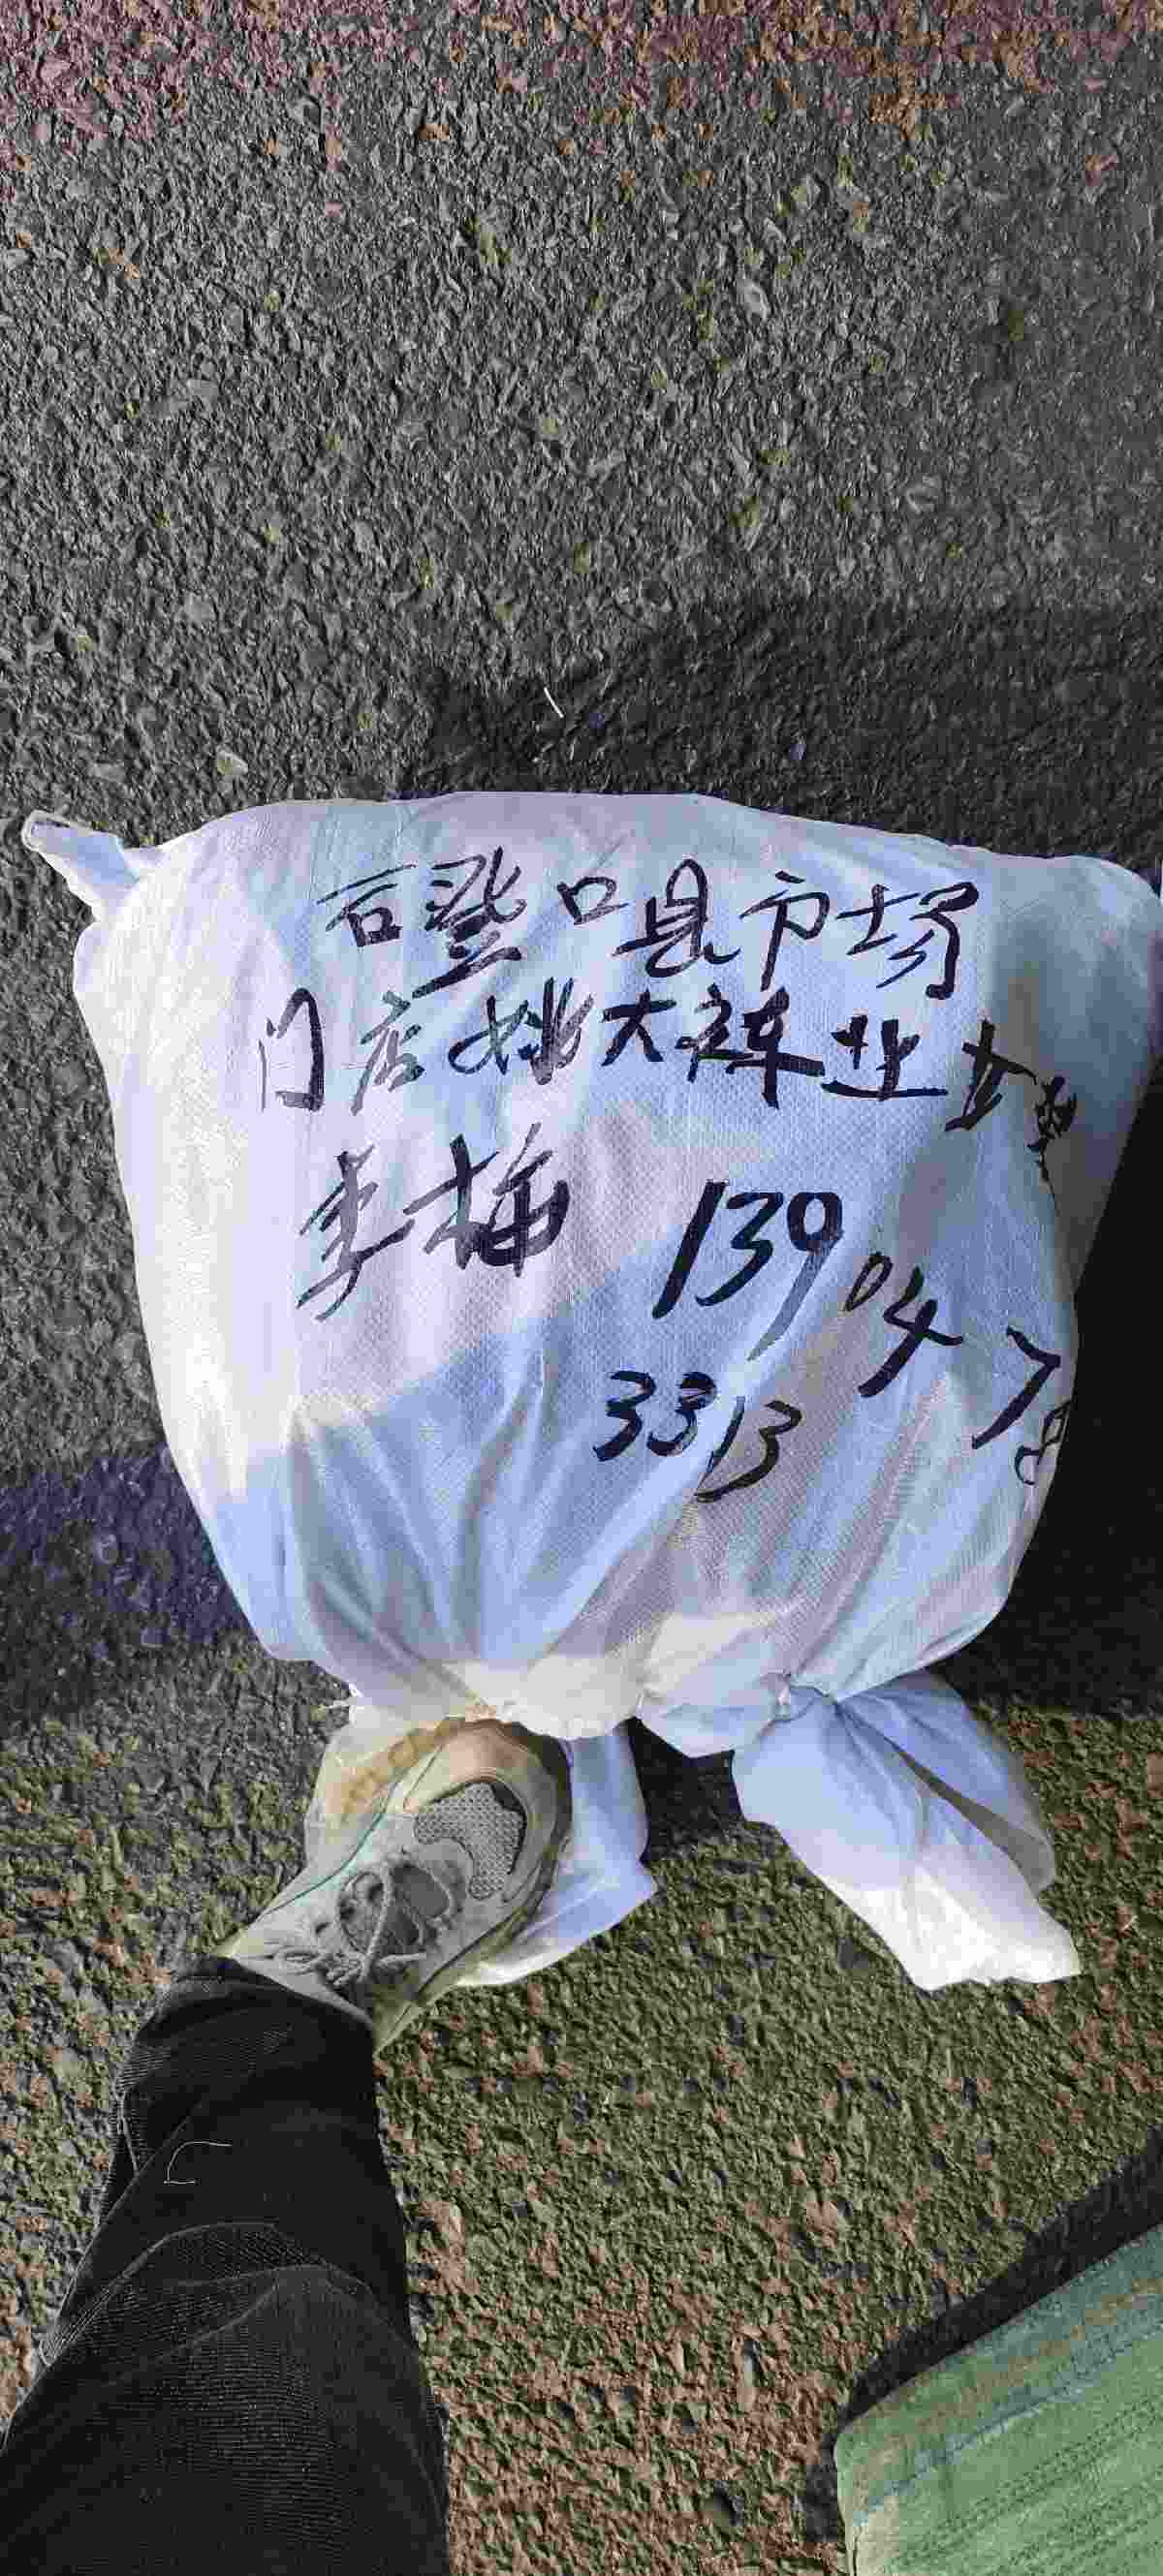 磴口县市场
门店姚大裤业
李梅 139 04 78
3313